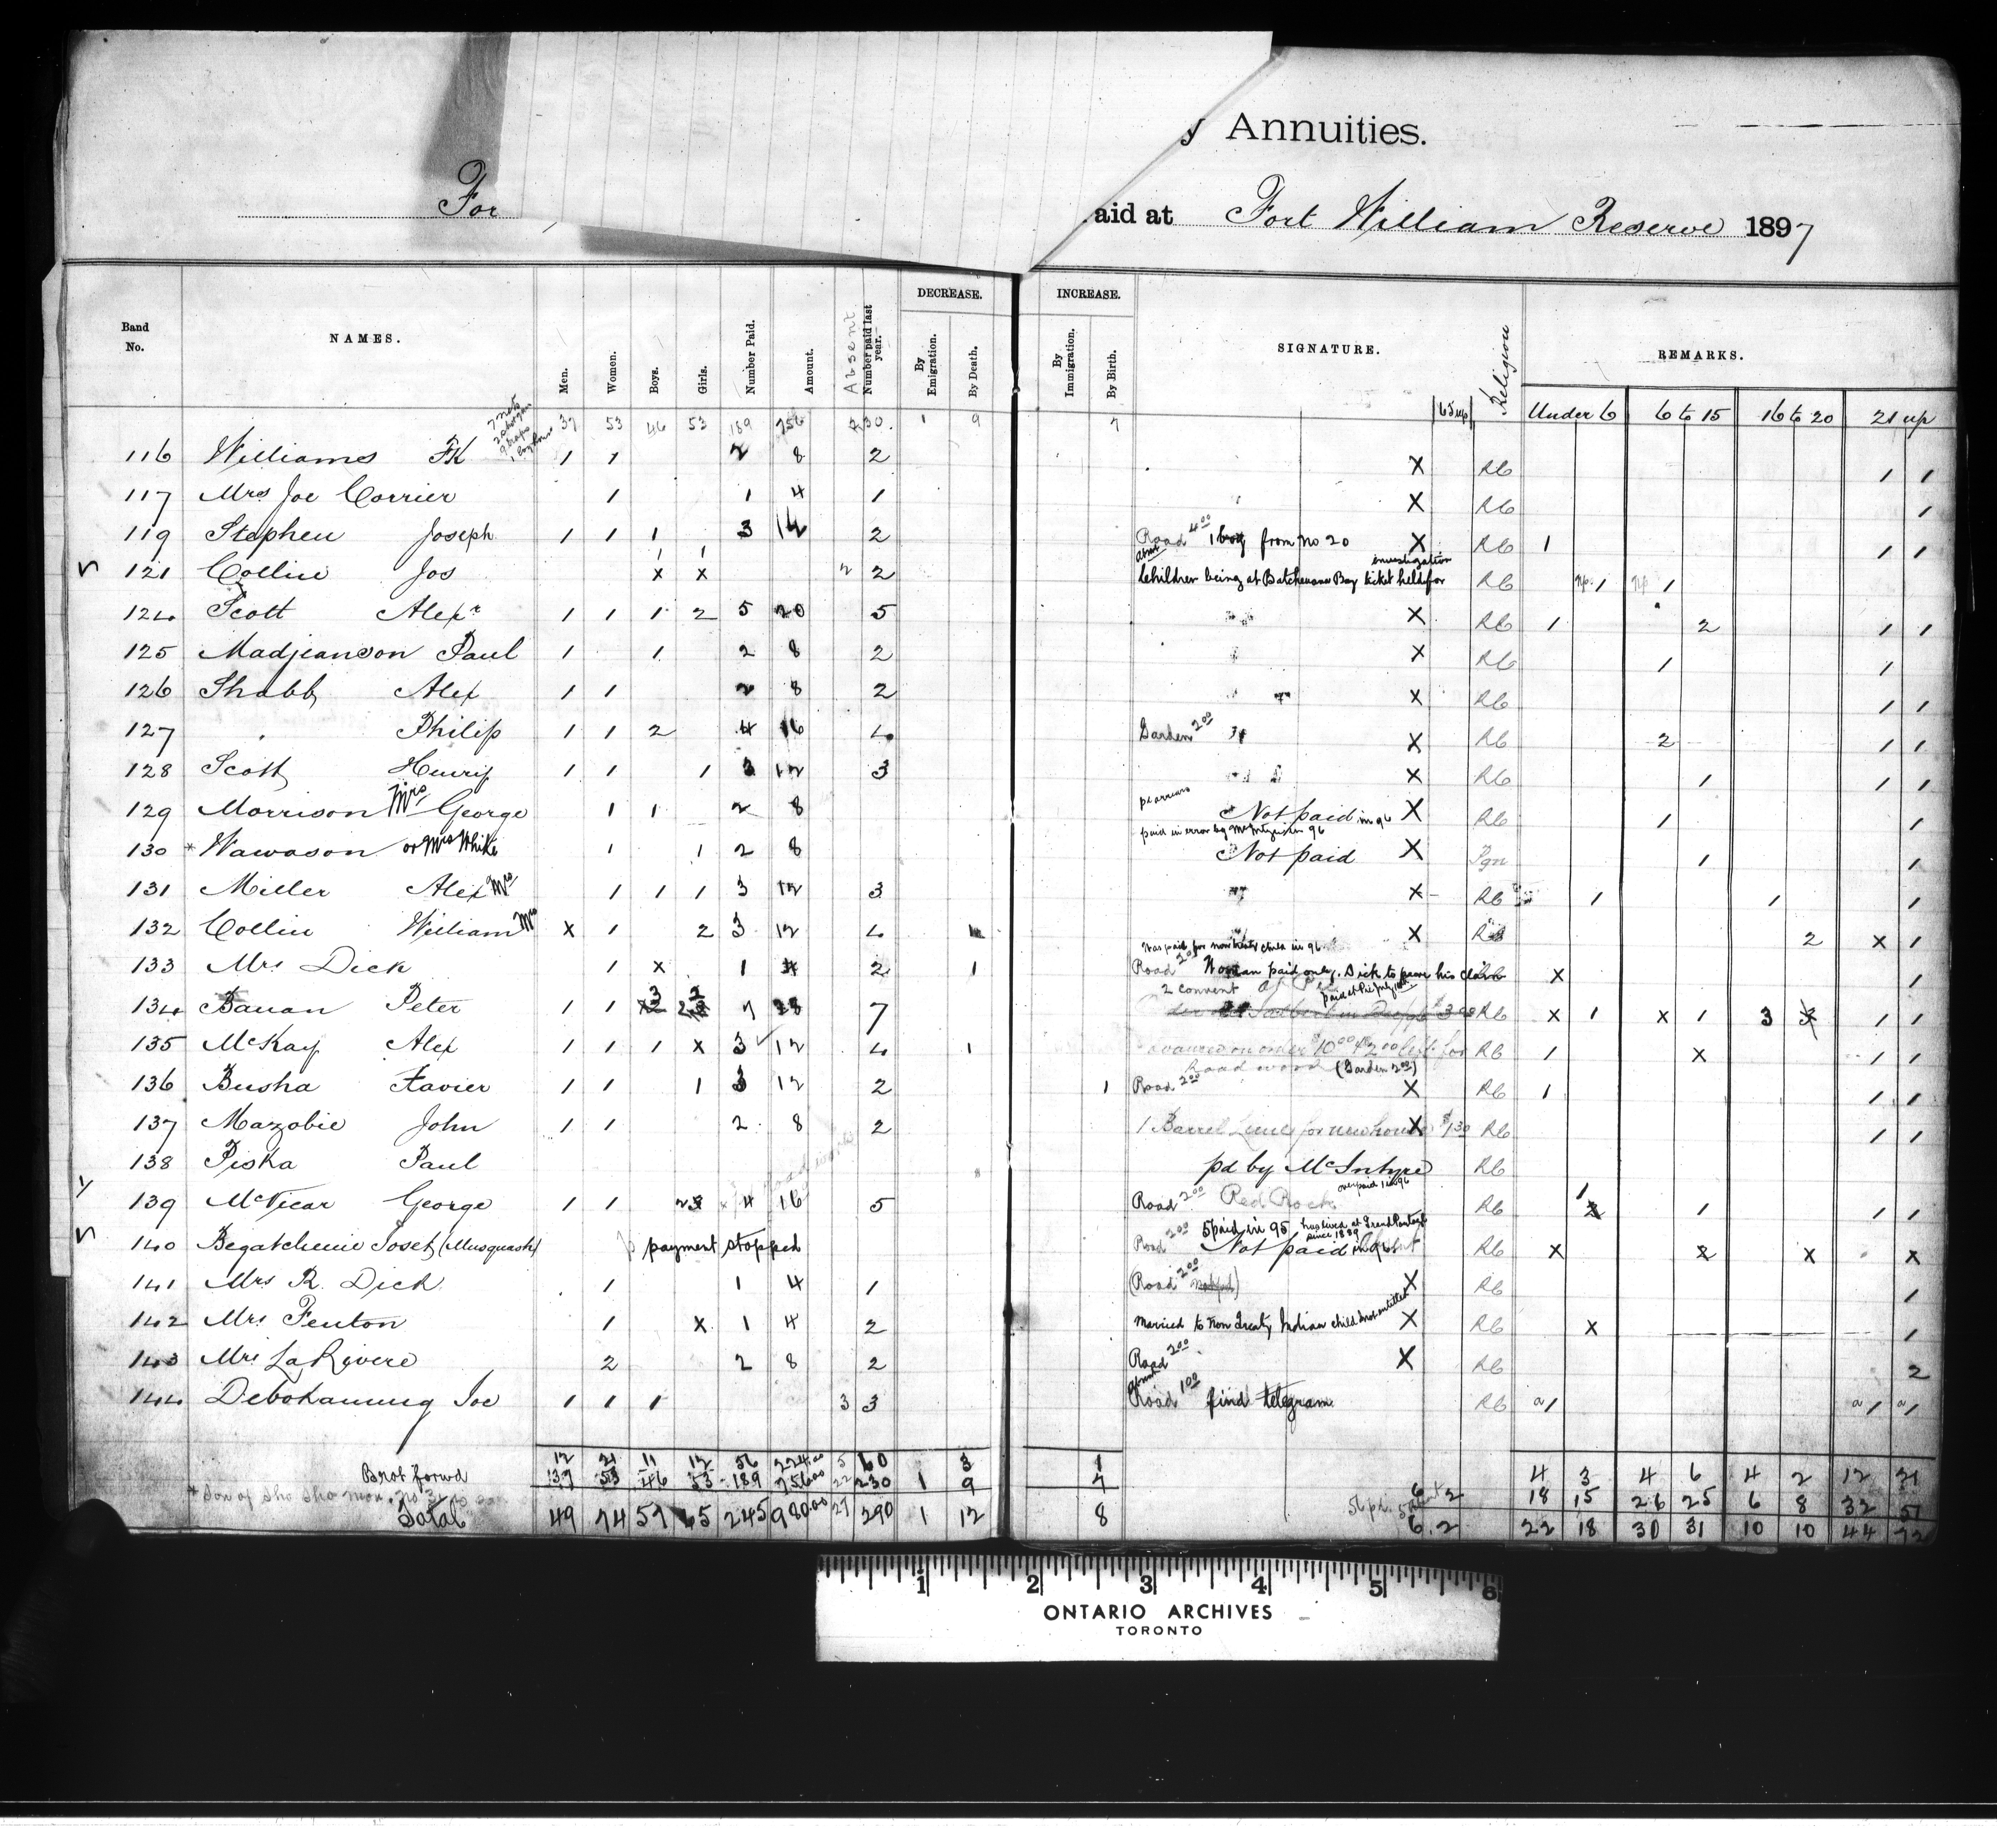 y Annuities.
For
aid at Fort William Reserve 1897
DECREASE. INCREASE.
Band No. NAMES. Men. Women. Boys. Girls. Number Paid. Amount. Absent Number paid last year. By Emigration. By Death. By Immigration. By Birth. SIGNATURE. 65 up Religion REMARKS.
Under 6 6 to 15 16 to 20 21 up
37 53 46 53 189 756 230 1 9 7
116 Williams FK 1 1 2 8 2 X RC 1 1
117 Mrs Joe Corrier 1 1 4 1 X RC 1
119 Stephen Joseph 1 1 1 3 12 2 Road 4 00 1 boy from no 20 X RC 1 1 1
121 Collin Jos 1 1 x x 2 2 Absent Children being at Batchewana Bay ticket held for investigation RC np. 1 np 1
124 Scott Alexr 1 1 1 2 5 20 5 X RC 1 2 1 1
125 Madjianson Paul 1 1 2 8 2 X RC 1 1
126 Shabb Alex 1 1 2 8 2 X RC 1 1
127 " Philip 1 1 2 4 16 4 Garden 2 00 X RC 2 1 1
128 Scott Henry 1 1 1 3 12 3 X RC 1 1 1
129 Morrison Mrs George 1 1 2 8 pd arrears Not paid in 96 X RC 1 1
130 * Wawason or Mrs White 1 1 2 8 paid in error by McIntyre in 96 Not paid X Pgn 1 1
131 Miller Alex Mrs 1 1 1 3 12 3 X RC 1 1 1
132 Collin William Mrs x 1 2 3 12 4 1 X RC 2 x 1
133 Mrs Dick 1 x 1 4 2 1 Was paid for non treaty child in 96 Road 2 00 Woman paid only. Dick to prove his claim RC x 1
134 Banan Peter 1 1 3 2 7 28 7 2 convent RC x 1 x 1 3 1 1
135 McKay Alex 1 1 1 x 3 12 4 1 Road work (Garden 2 00) RC 1 x 1 1
136 Busha Xavier 1 1 1 3 12 2 1 Road 2 00 X RC 1 1 1
137 Mazobie John 1 1 2 8 2 1 Barrel Lime for new house X $1.30 RC 1 1
138 Piska Paul pd by McIntyre RC
139 McVicar George 1 1 2 4 16 5 Road 2 00 Red Rock over paid 1 in 96 RC 1 1 1 1
140 Begatchenie Joset (Musquash) payment stopped Road 2 00 5 paid in 95 has lived at Grand Portage since 1889 Not paid in 96 RC x 2 x x
141 Mrs R. Dick 1 1 4 1 (Road 2 00 not pd) X RC 1
142 Mrs Fenton 1 x 1 4 2 Married to non Treaty Indian child not entitled X RC x 1
143 Mrs LaRivere 2 2 8 2 Road 2 00 X RC 2
144 Debokanung Joe 1 1 1 3 3 Absent Road 1 00 find telegram RC a1 a1 a1
12 21 11 12 56 224.00 5 60 3 1 4 3 4 6 4 2 12 21
Brot forwd 37 53 46 53 189 756 00 22 230 1 9 7 6 2 18 15 26 25 6 8 32 51
Total 49 74 57 65 245 980.00 27 290 1 12 8 6.2 22 18 30 31 10 10 44 72
1 2 3 4 5 6
ONTARIO ARCHIVES
TORONTO